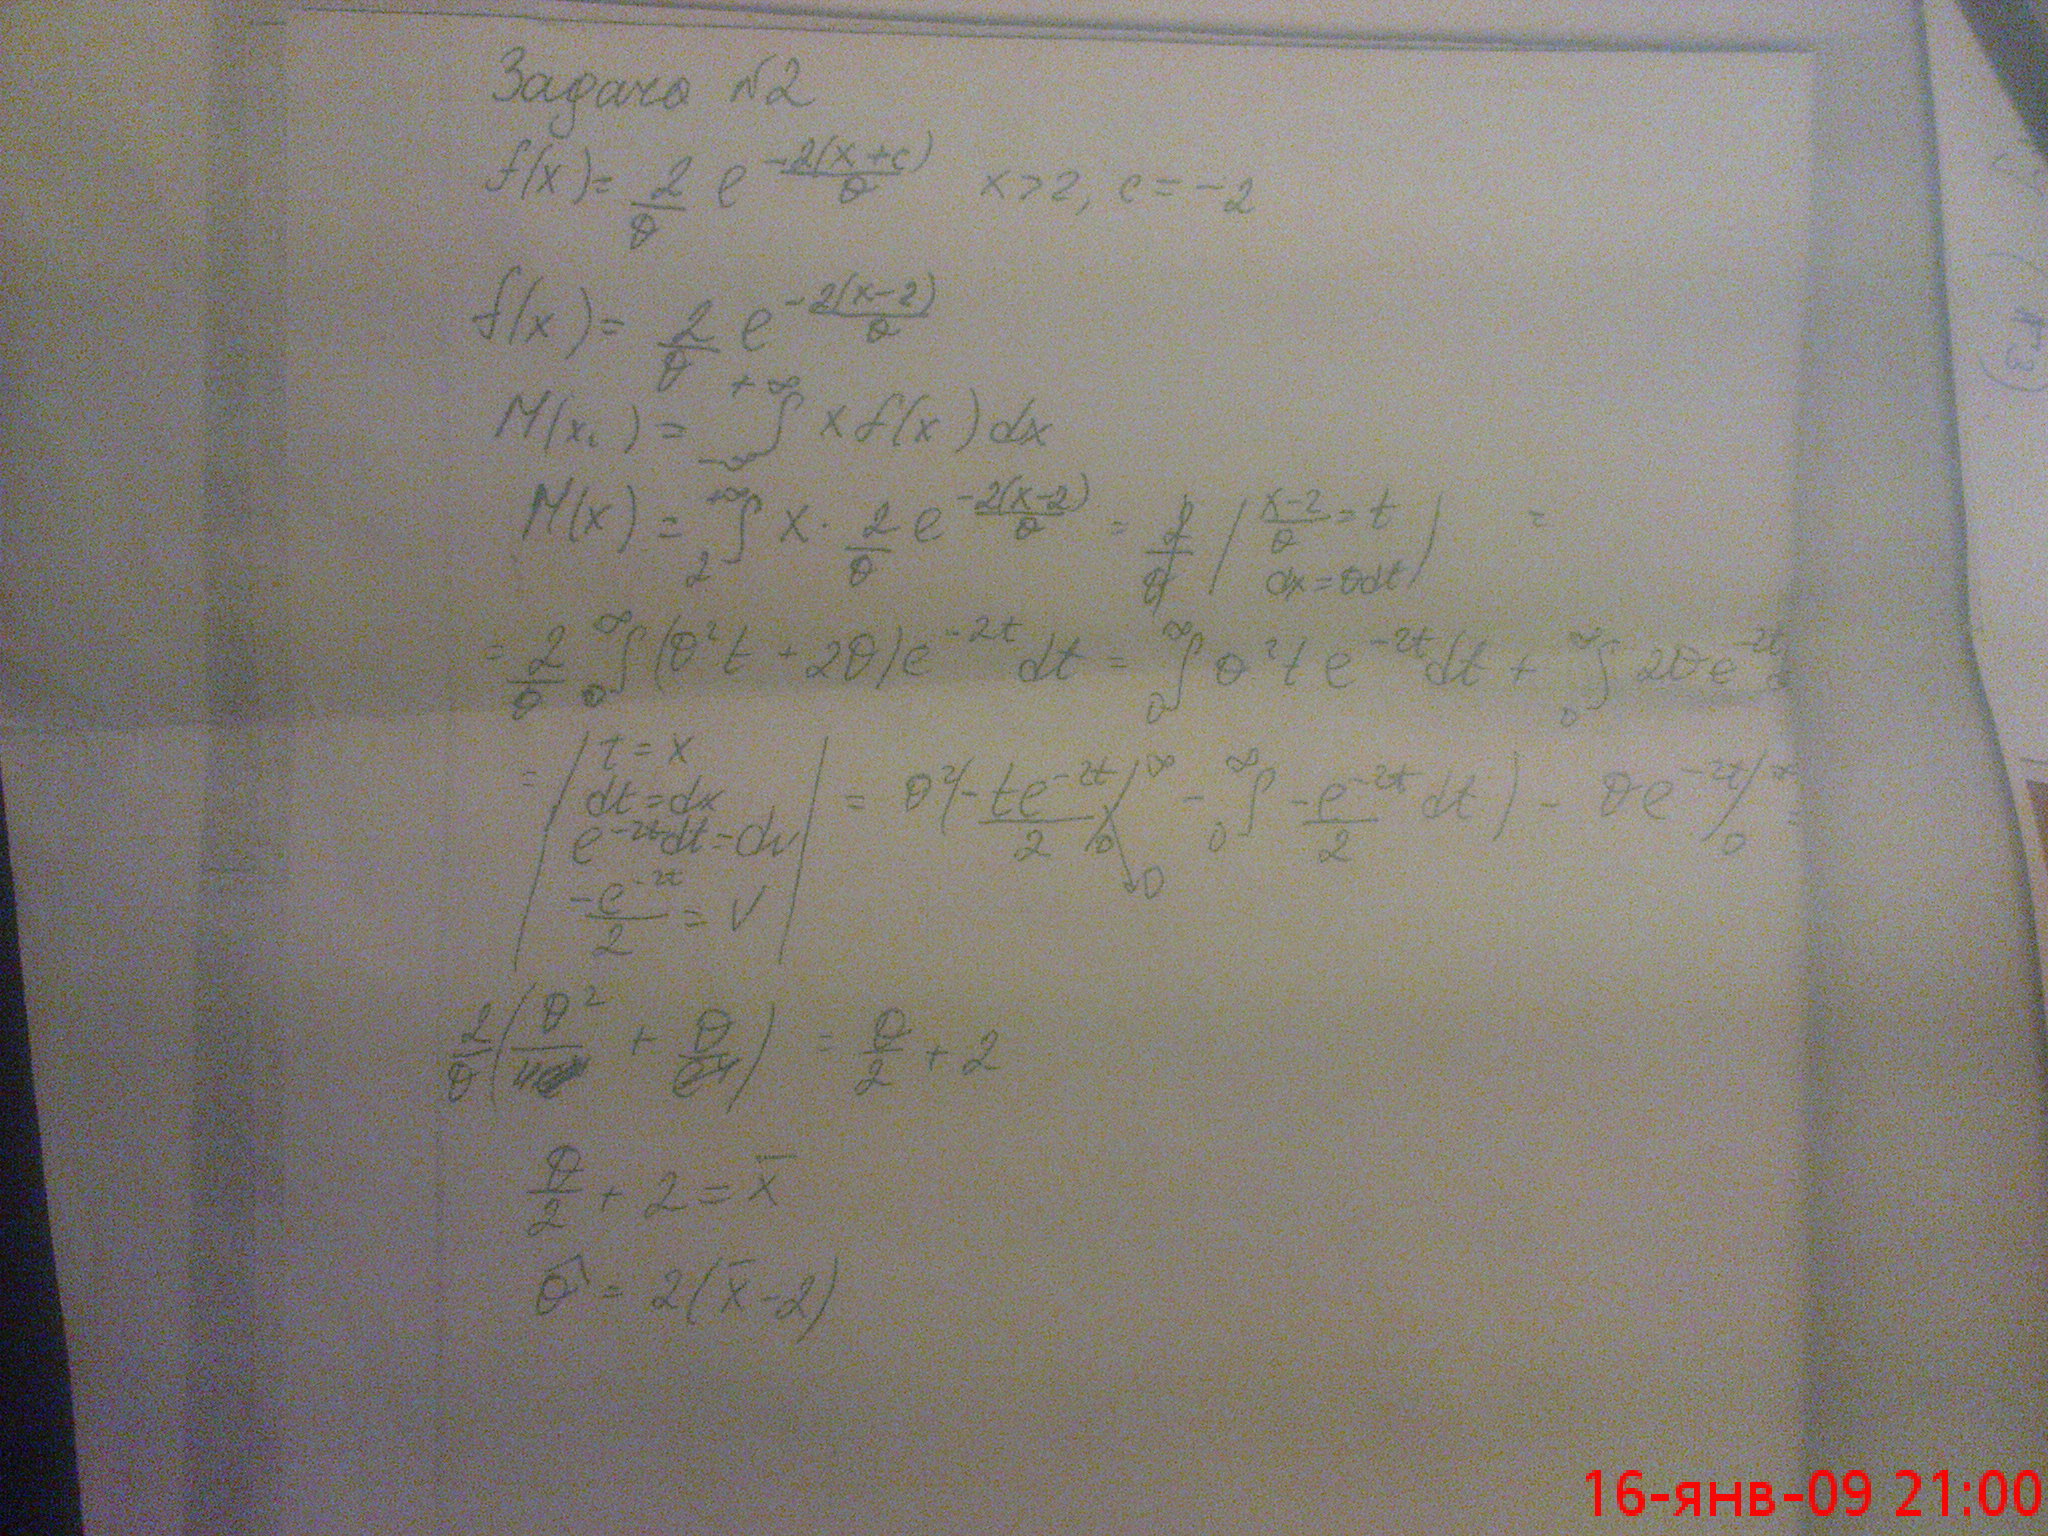 Задача №2
f(x) = 2/θ e^(-2(x+c)/θ) x>2, c=-2
f(x) = 2/θ e^(-2(x-2)/θ)
M(x.) = ∫_{-∞}^{+∞} x f(x) dx
M(x) = ∫_2^{+∞} x · 2/θ e^(-2(x-2)/θ) = 2/θ | (x-2)/θ = t dx = θdt | =
= 2/θ ∫_0^∞ (θ²t + 2θ) e^(-2t) dt = ∫_0^∞ θ² t e^(-2t) dt + ∫_0^∞ 2θ e^(-2t)
= | t = x dt = dx e^(-2t) dt = dv -e^(-2t)/2 = v | = θ² (- te^(-2t)/2 |_0^∞ → 0 - ∫_0^∞ -e^(-2t)/2 dt) - θe^(-2t) |_0^∞ =
2/θ (θ²/4 + θ) = θ/2 + 2
θ/2 + 2 = x̄
θ̂ = 2(x̄ - 2)
16-янв-09 21:00